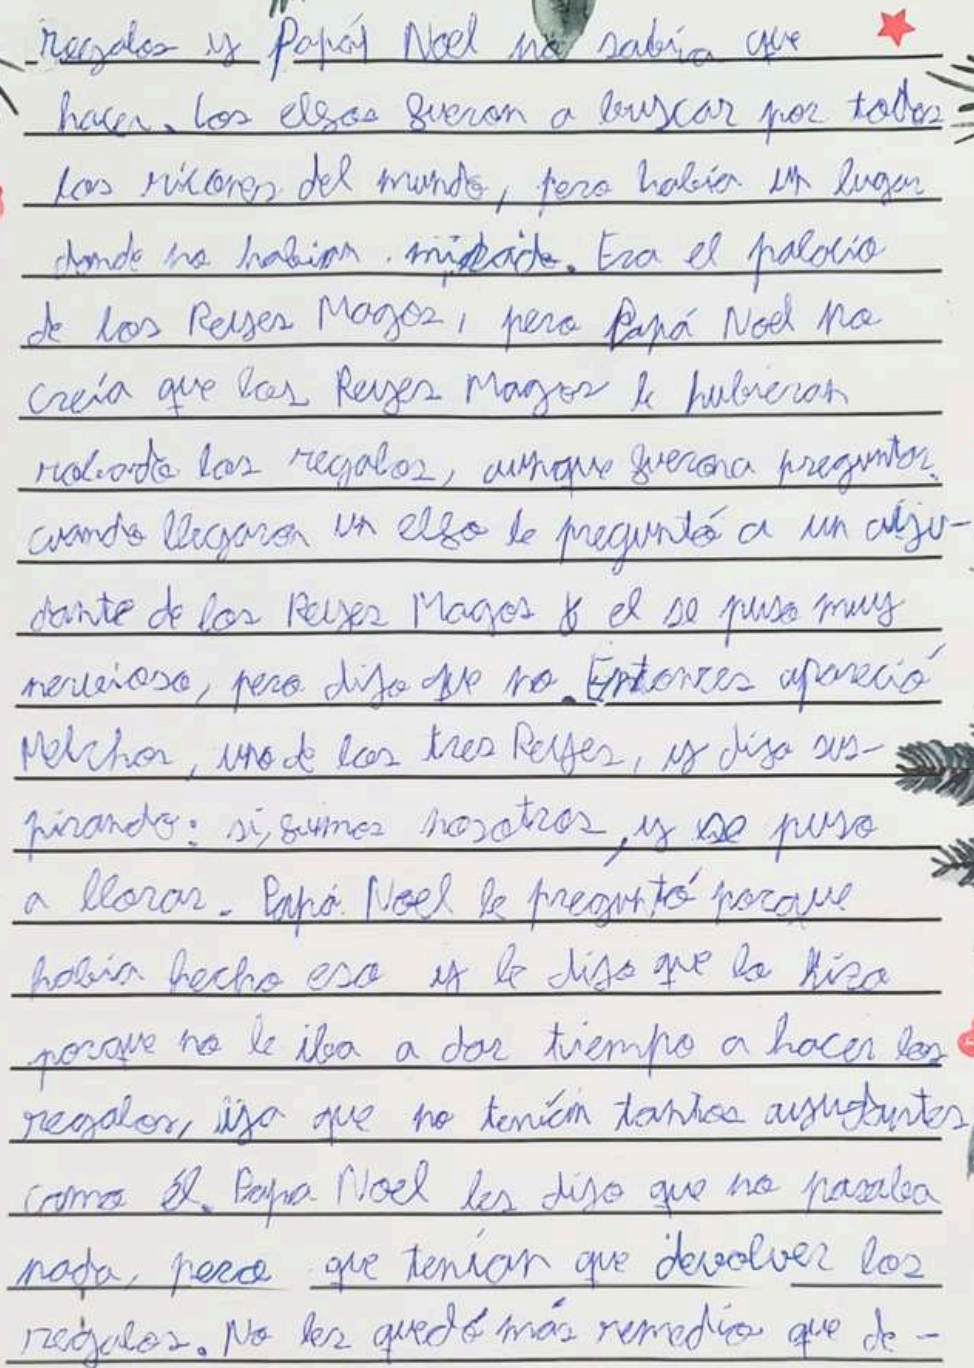 regalos y Papá Noel no sabía que
hacer. Los elfos fueron a buscar por todos
los ricones del mundo, pero había un lugar
donde no habían mirado. Era el palacio
de los Reyes Magos, pero Papá Noel no
creía que los Reyes Magos le hubieran
robado los regalos, aunque fueron a preguntar.
cuando llegaron un elfo le preguntó a un ayu-
dante de los Reyes Magos y el se puso muy
nervioso, pero dijo que no. Entonces apareció
Melchor, uno de los tres Reyes, y dijo sus-
pirando: si, fuimos nosotros, y se puso
a llorar. Papá Noel le preguntó porque
había hecho eso y le dijo que lo hizo
porque no le iba a dar tiempo a hacer los
regalos, ya que no tenían tantos ayudantes
como él. Papa Noel les dijo que no pasaba
nada, pero que tenían que devolver los
regalos. No les quedó más remedio que de-